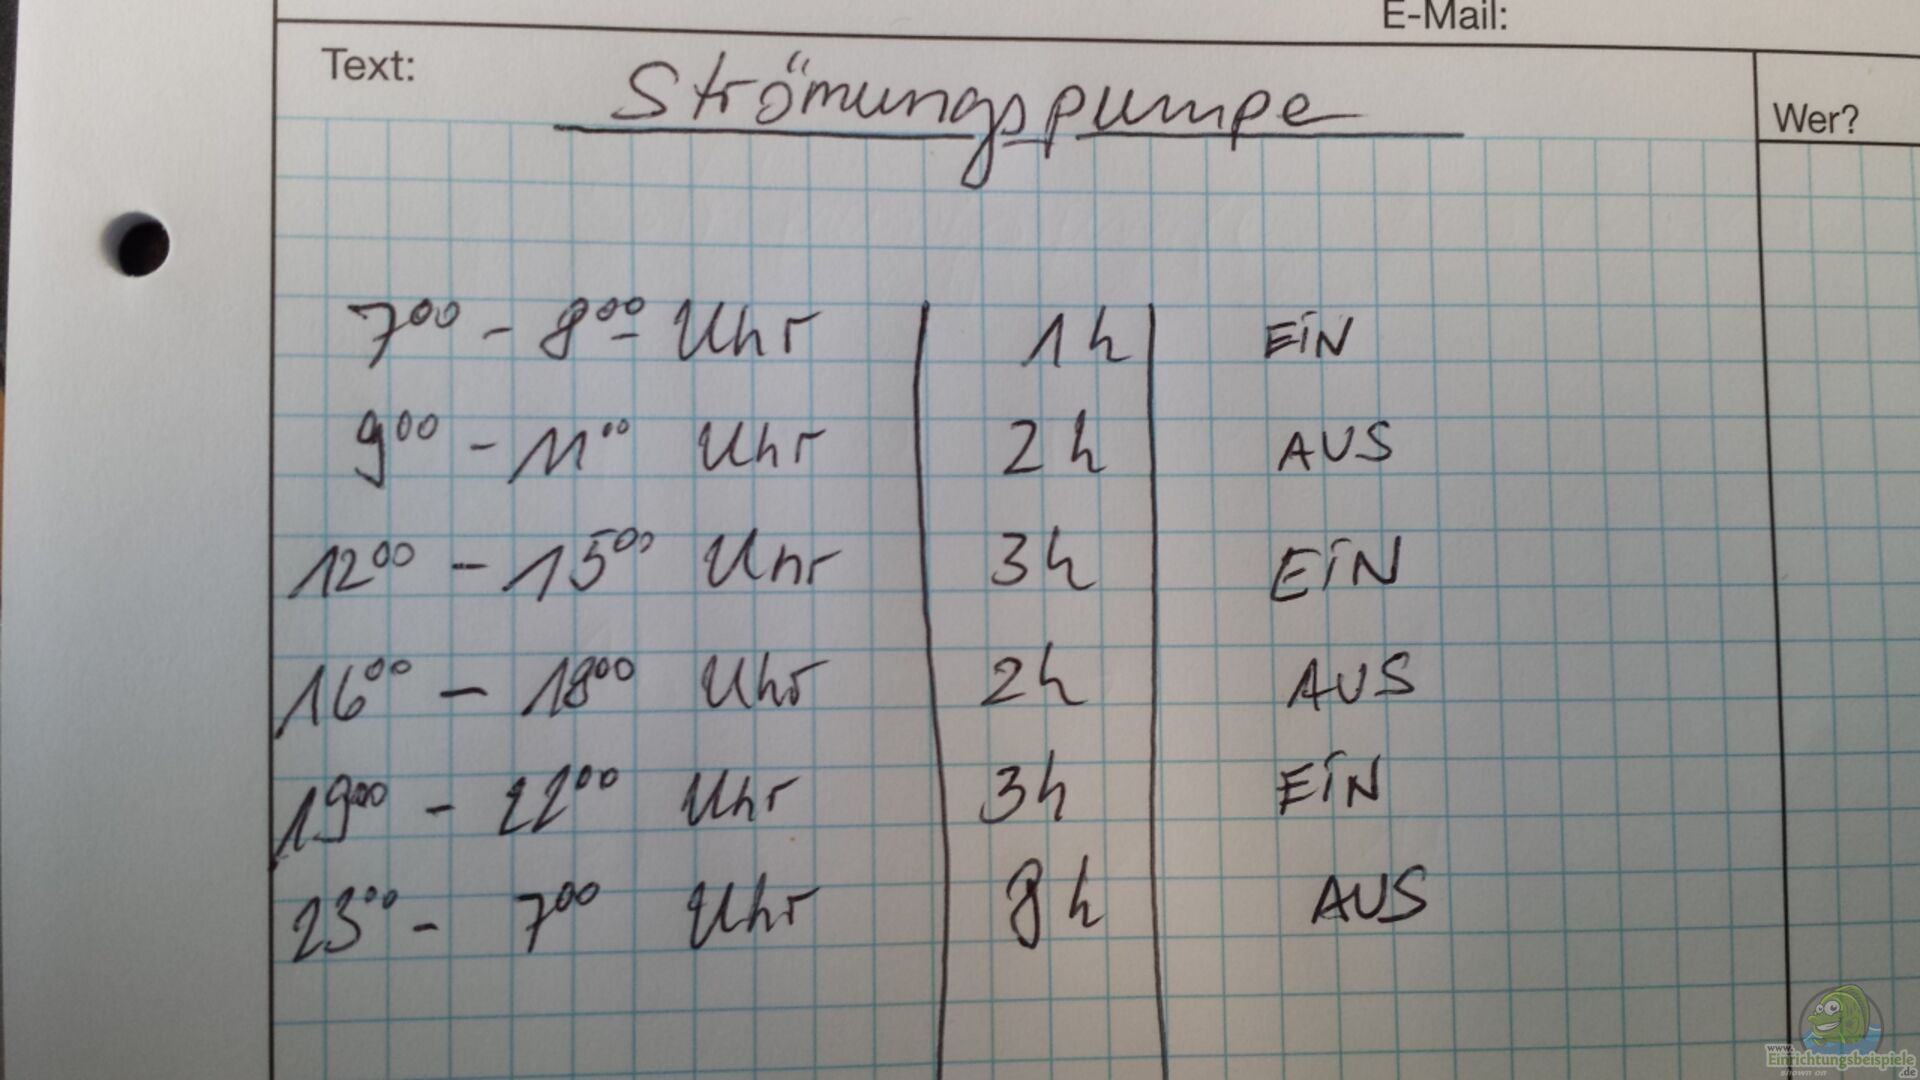 E-Mail:
Text:
Strömungspumpe
Wer?
7⁰⁰ - 8⁰⁰ Uhr 1h EiN
9⁰⁰ - 11⁰⁰ Uhr 2h AUS
12⁰⁰ - 15⁰⁰ Uhr 3h EiN
16⁰⁰ - 18⁰⁰ Uhr 2h AUS
19⁰⁰ - 22⁰⁰ Uhr 3h EiN
23⁰⁰ - 7⁰⁰ Uhr 8h AUS
www.
Einrichtungsbeispiele
shown on .de